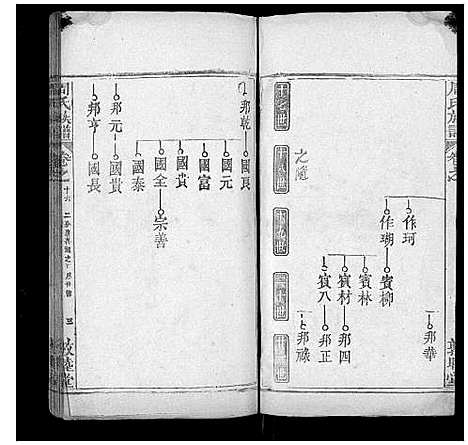 周氏族譜
卷之
作珂
作瑚
賓柳
賓林
賓材
賓八
邦華
邦四
邦正
邦祿
之隨
邦乾
國良
國元
國富
國貴
國全
宗善
國泰
邦元
國貴
邦亨
國長
周氏族譜
卷之
十六
三
敦睦堂